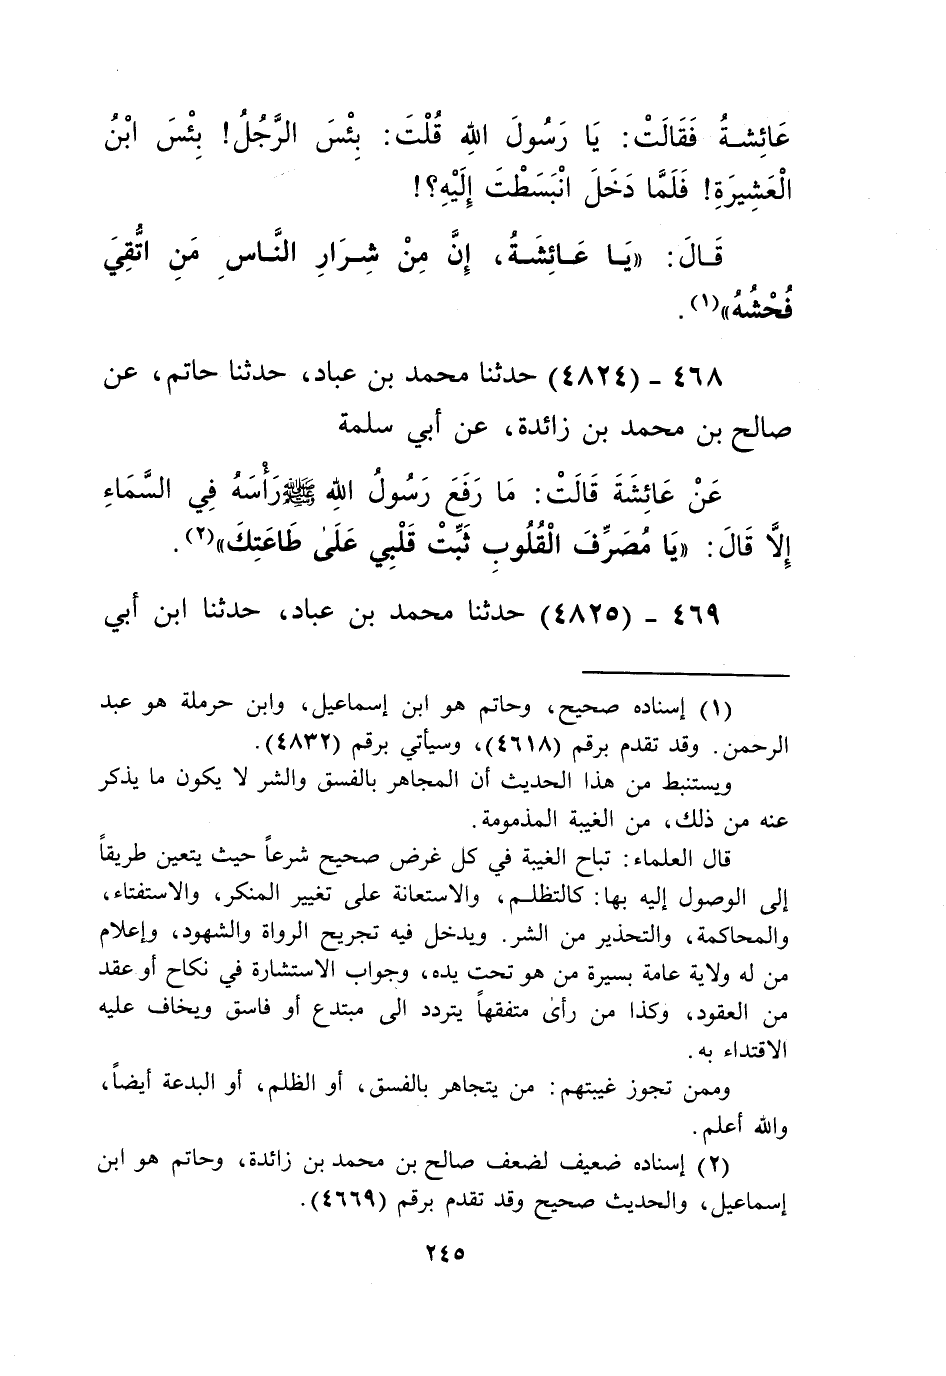 عَائِشَةُ فَقَالَتْ: يَا رَسُولَ اللهِ قُلْتَ: بِئْسَ الرَّجُلُ! بِئْسَ ابْنُ
الْعَشِيرَةِ! فَلَمَّا دَخَلَ انْبَسَطْتَ إِلَيْهِ؟!
قَالَ: «يَا عَائِشَةُ، إِنَّ مِنْ شِرَارِ النَّاسِ مَنِ اتُّقِيَ
فُحْشُهُ»(١).
٤٦٨ - (٤٨٢٤) حدثنا محمد بن عباد، حدثنا حاتم، عن
صالح بن محمد بن زائدة، عن أبي سلمة
عَنْ عَائِشَةَ قَالَتْ: مَا رَفَعَ رَسُولُ اللهِ ﷺ رَأْسَهُ فِي السَّمَاءِ
إِلَّا قَالَ: «يَا مُصَرِّفَ الْقُلُوبِ ثَبِّتْ قَلْبِي عَلَىٰ طَاعَتِكَ»(٢).
٤٦٩ - (٤٨٢٥) حدثنا محمد بن عباد، حدثنا ابن أبي
(١) إسناده صحيح، وحاتم هو ابن إسماعيل، وابن حرملة هو عبد
الرحمن. وقد تقدم برقم (٤٦١٨)، وسيأتي برقم (٤٨٣٢).
ويستنبط من هذا الحديث أن المجاهر بالفسق والشر لا يكون ما يذكر
عنه من ذلك، من الغيبة المذمومة.
قال العلماء: تباح الغيبة في كل غرض صحيح شرعاً حيث يتعين طريقاً
إلى الوصول إليه بها: كالتظلم، والاستعانة على تغيير المنكر، والاستفتاء،
والمحاكمة، والتحذير من الشر. ويدخل فيه تجريح الرواة والشهود، وإعلام
من له ولاية عامة بسيرة من هو تحت يده، وجواب الاستشارة في نكاح أو عقد
من العقود، وكذا من رأىٰ متفقهاً يتردد الى مبتدع أو فاسق ويخاف عليه
الاقتداء به.
وممن تجوز غيبتهم: من يتجاهر بالفسق، أو الظلم، أو البدعة أيضاً،
والله أعلم.
(٢) إسناده ضعيف لضعف صالح بن محمد بن زائدة، وحاتم هو ابن
إسماعيل، والحديث صحيح وقد تقدم برقم (٤٦٦٩).
٢٤٥